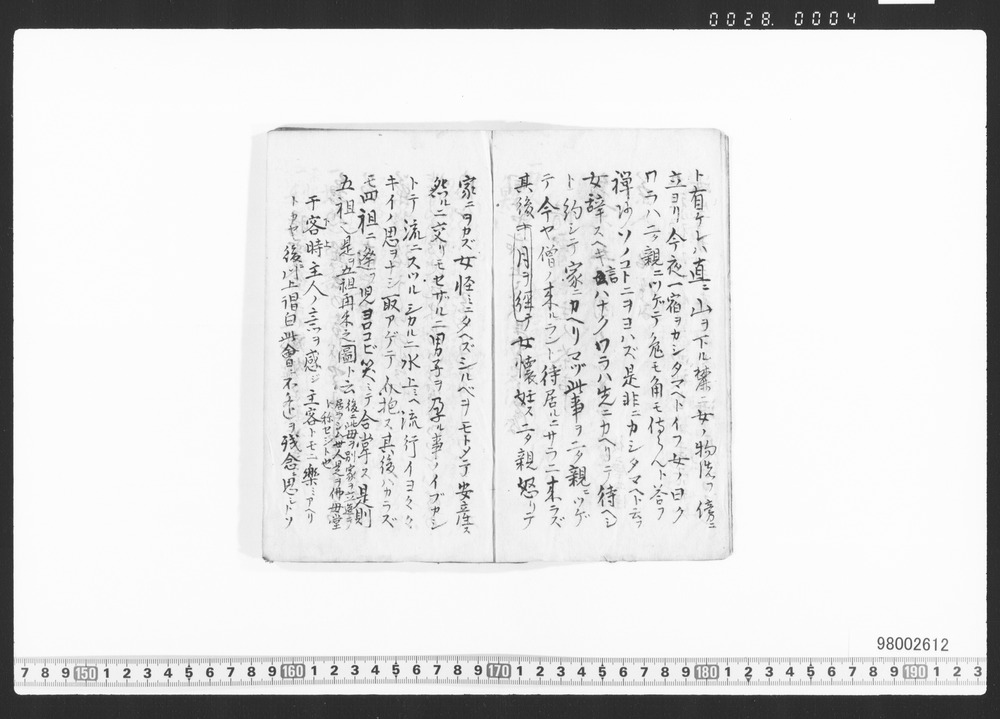 0028. 0004
ト有ケレハ直ニ山ヲ下ル麓ニ女ノ物洗フ傍ニ
立ヨリ今夜一宿ヲカシタマヘトイフ女ノ曰ク
ワラハニ親ニツゲテ兎モ角モ侍らんト答フ
禅師ソノコトニヲヨハズ是非ニカシタマヘト云フ
女辞スヘキ言ハナクワラハ先ニカヘリテ待ヘシ
ト約シテ家ニカヘリマヅ此事ヲ二親ニツゲ
テ今ヤ僧ノ来ルラント待居ルニサラニ来ラズ
其後十月ヲ経テ女懐妊ス二タ親怒リテ
家ニヲカズ女怪ミニタヘズシルベヲモトメテ安産ス
然ルニ交リモセザルニ男子ヲ孕ル事ノイブカシ
トテ流ニスツルシカルニ水上ヘ流行イヨ〱
キイノ思ヲナシ取アゲテ介抱ス其後ハカラズ
モ四祖ニ逢フ児ヨロコビ笑ミテ合掌ス是則
五祖也是ヲ五祖再来之圖ト云 後ニ此母ヲ別家ヲ立
居ラシム世人是ヲ佛母堂
ト称セシト也
于客時主人ノ意ヲ感ジ主客トモニ楽ミアヘリ
98002612
7 8 9 150 1 2 3 4 5 6 7 8 9 160 1 2 3 4 5 6 7 8 9 170 1 2 3 4 5 6 7 8 9 180 1 2 3 4 5 6 7 8 9 190 1 2 3